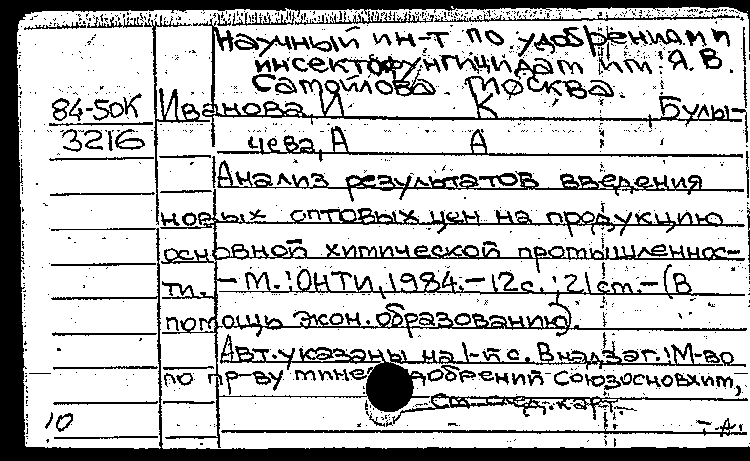 Научный ин-т по удобрениям и
инсектофунгицидам им. Я.В.
Самойлова. Москва.
84-50К Иванова, И К , Булы-
3216 чева, А А
Анализ результатов введения
новых оптовых цен на продукцию
основной химической промышленнос-
ти. - М.: ОНТИ, 1984. - 12 с.; 21 см. - (В
помощь экон. образованию).
Авт. указаны на 1-й с. В надзаг.: М-во
по пр-ву минер. удобрений Союзосновхим,
См. след. карт.
10